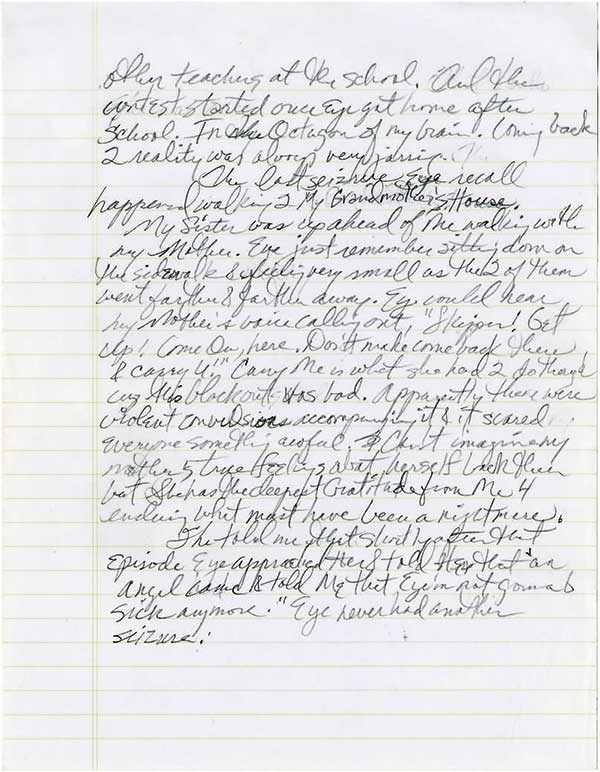 other teaching at the school. And then
contest started once Eye got home after
school. In the Octagon of my brain. Coming back
2 reality was always very jarring.
The last seizure Eye recall
happened walking 2 My Grandmother's House.
My Sister was up ahead of me walking with
my Mother. Eye just remember sitting down on
the sidewalk & feeling very small as the 2 of them
went farther & farther away. Eye could hear
my Mother's voice calling out, "Skipper! Get
up! Come On, here. Don't make come back there
& carry U!" Carry Me is what she had 2 do though
cuz this blackout was bad. Apparently there were
violent convulsions accompanying it & it scared
everyone something awful. Eye can't imagine my
mother's true feelings about herself back then
but She has the deepest Gratitude from Me 4
enduring what must have been a nightmare.
She told me that shortly after that
Episode Eye approached Her & told Her that "an
angel came & told Me that Eye'm not gonna b
sick anymore." Eye never had another
seizure.